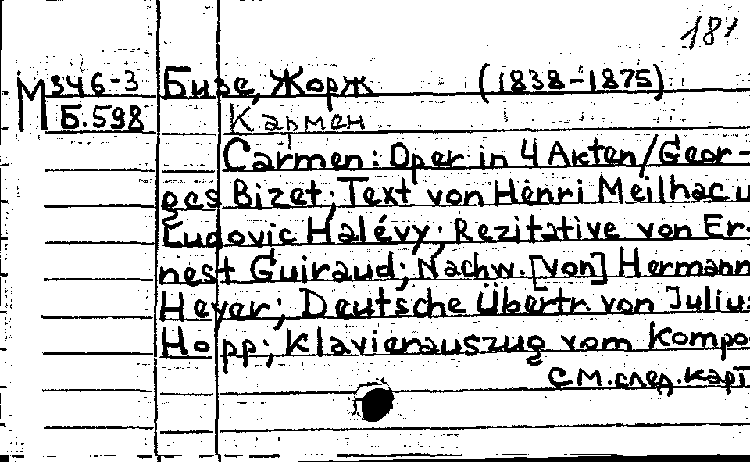 181
М 346-3 Бизе, Жорж (1838-1875)
Б.598 Кармен
Carmen: Oper in 4 Akten/Geor-
ges Bizet; Text von Henri Meilhac u
Ludovic Halévy; Rezitative von Er-
nest Guiraud; Nachw. [von] Hermann
Heyer; Deutsche Übertr. von Julius
Hopp; Klavierauszug vom Kompo-
см.след.карт